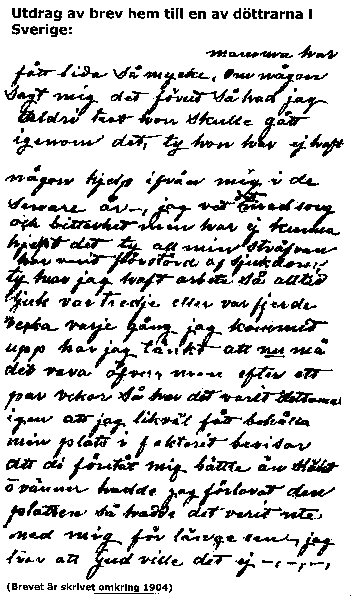 Utdrag av brev hem till en av döttrarna I
Sverige:
mamma har
fått lida så mycke, om någon
sagt mig det förut så had jag
aldri trot hon skulle gått
igenom det, ty hon har ej haft
någon hjelp ifrån mig i de
senare år-, jag vet med sorg
och bitterhet men har ej kunna
hjelpt det ty all min sträfvan
har varit förstörd af sjukdom;
ty har jag haft arbete så alltid
sjuk var tredje eller var fjerde
vecka varje gång jag kommit
upp har jag tänkt att nu må
det vara öfver men efter ett
par vekor så har det varit
igen att jag likväl fått behålla
min plats i faktorit bevisar
att di förstår mig bättre än
ovänner hade jag förlorat den
platsen så hade det varit ute
med mig för länge sen, jag
tror att Gud ville det ej -,-,-,
(Brevet är skrivet omkring 1904)